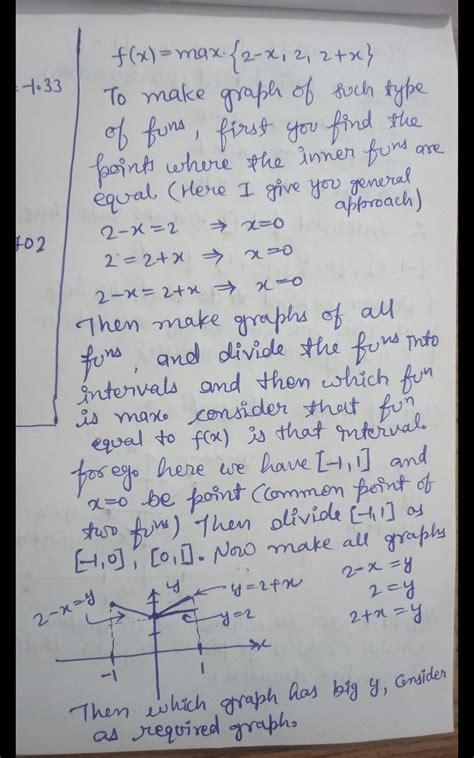 f(x) = max. {2-x, 2, 2+x}
=-1.33
To make graph of such type
of funs, first you find the
points where the inner funs are
equal (Here I give you general
approach)
2-x=2 ⇒ x=0
702
2=2+x ⇒ x=0
2-x=2+x ⇒ x=0
Then make graphs of all
funs, and divide the funs into
intervals and then which fun
is max. consider that fun
equal to f(x) is that interval.
for eg. here we have [-1,1] and
x=0 be point (common point of
two funs) Then divide [-1,1] as
[-1,0], [0,1]. Now make all graphs
2-x=y
2=y
2+x=y
2-x=y
y
y=2+x
y=2
x
-1
1
Then which graph has big y, consider
as required graph.